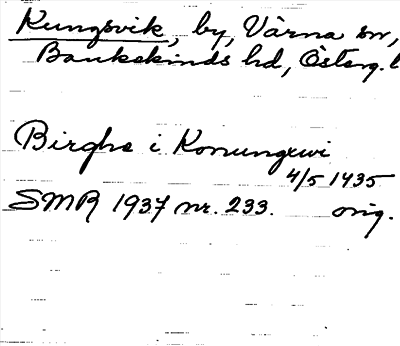 Kungsvik, by, Vårna sn,
Bankekinds hd, Österg. l
Birghe i Konungxwi
4/5 1435
SMR 1937 nr. 233. orig.